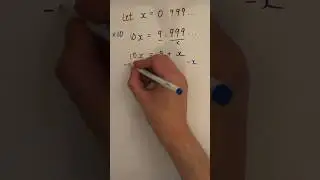 Let x = 0.999...
×10 10x = 9.999...
x
10x = 9 + x
-x -x